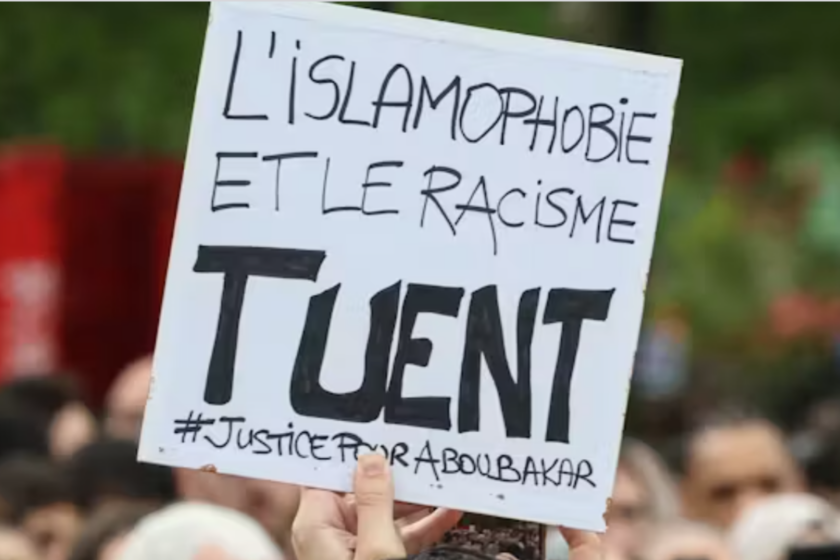 L'iSLAMOPHOBiE
ET LE RACiSME
TUENT
#JUSTICE POUR ABOUBAKAR